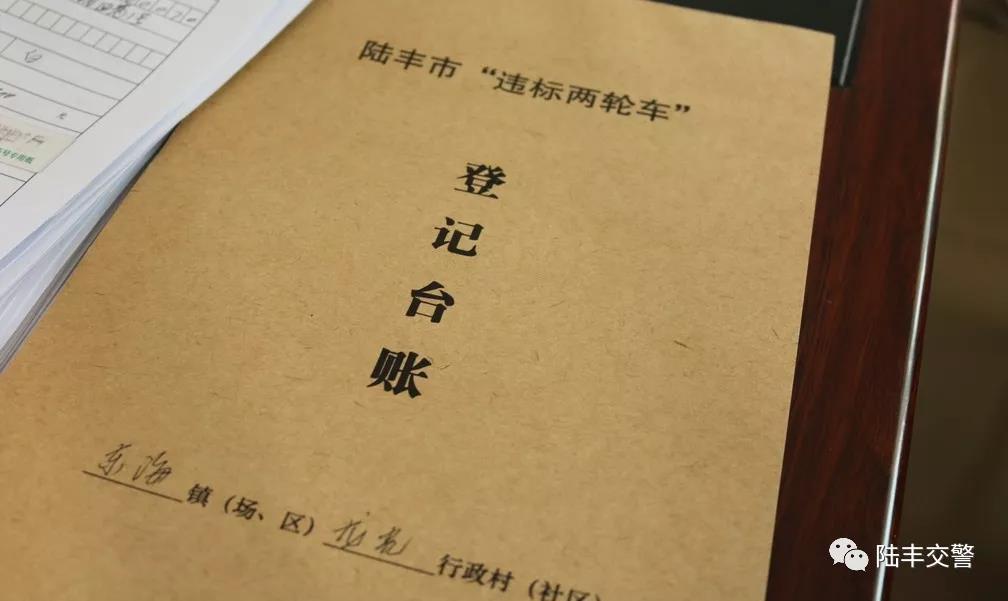 陆丰市“违标两轮车”
登
记
台
账
东海镇（场、区）龙光行政村（社区）
陆丰交警